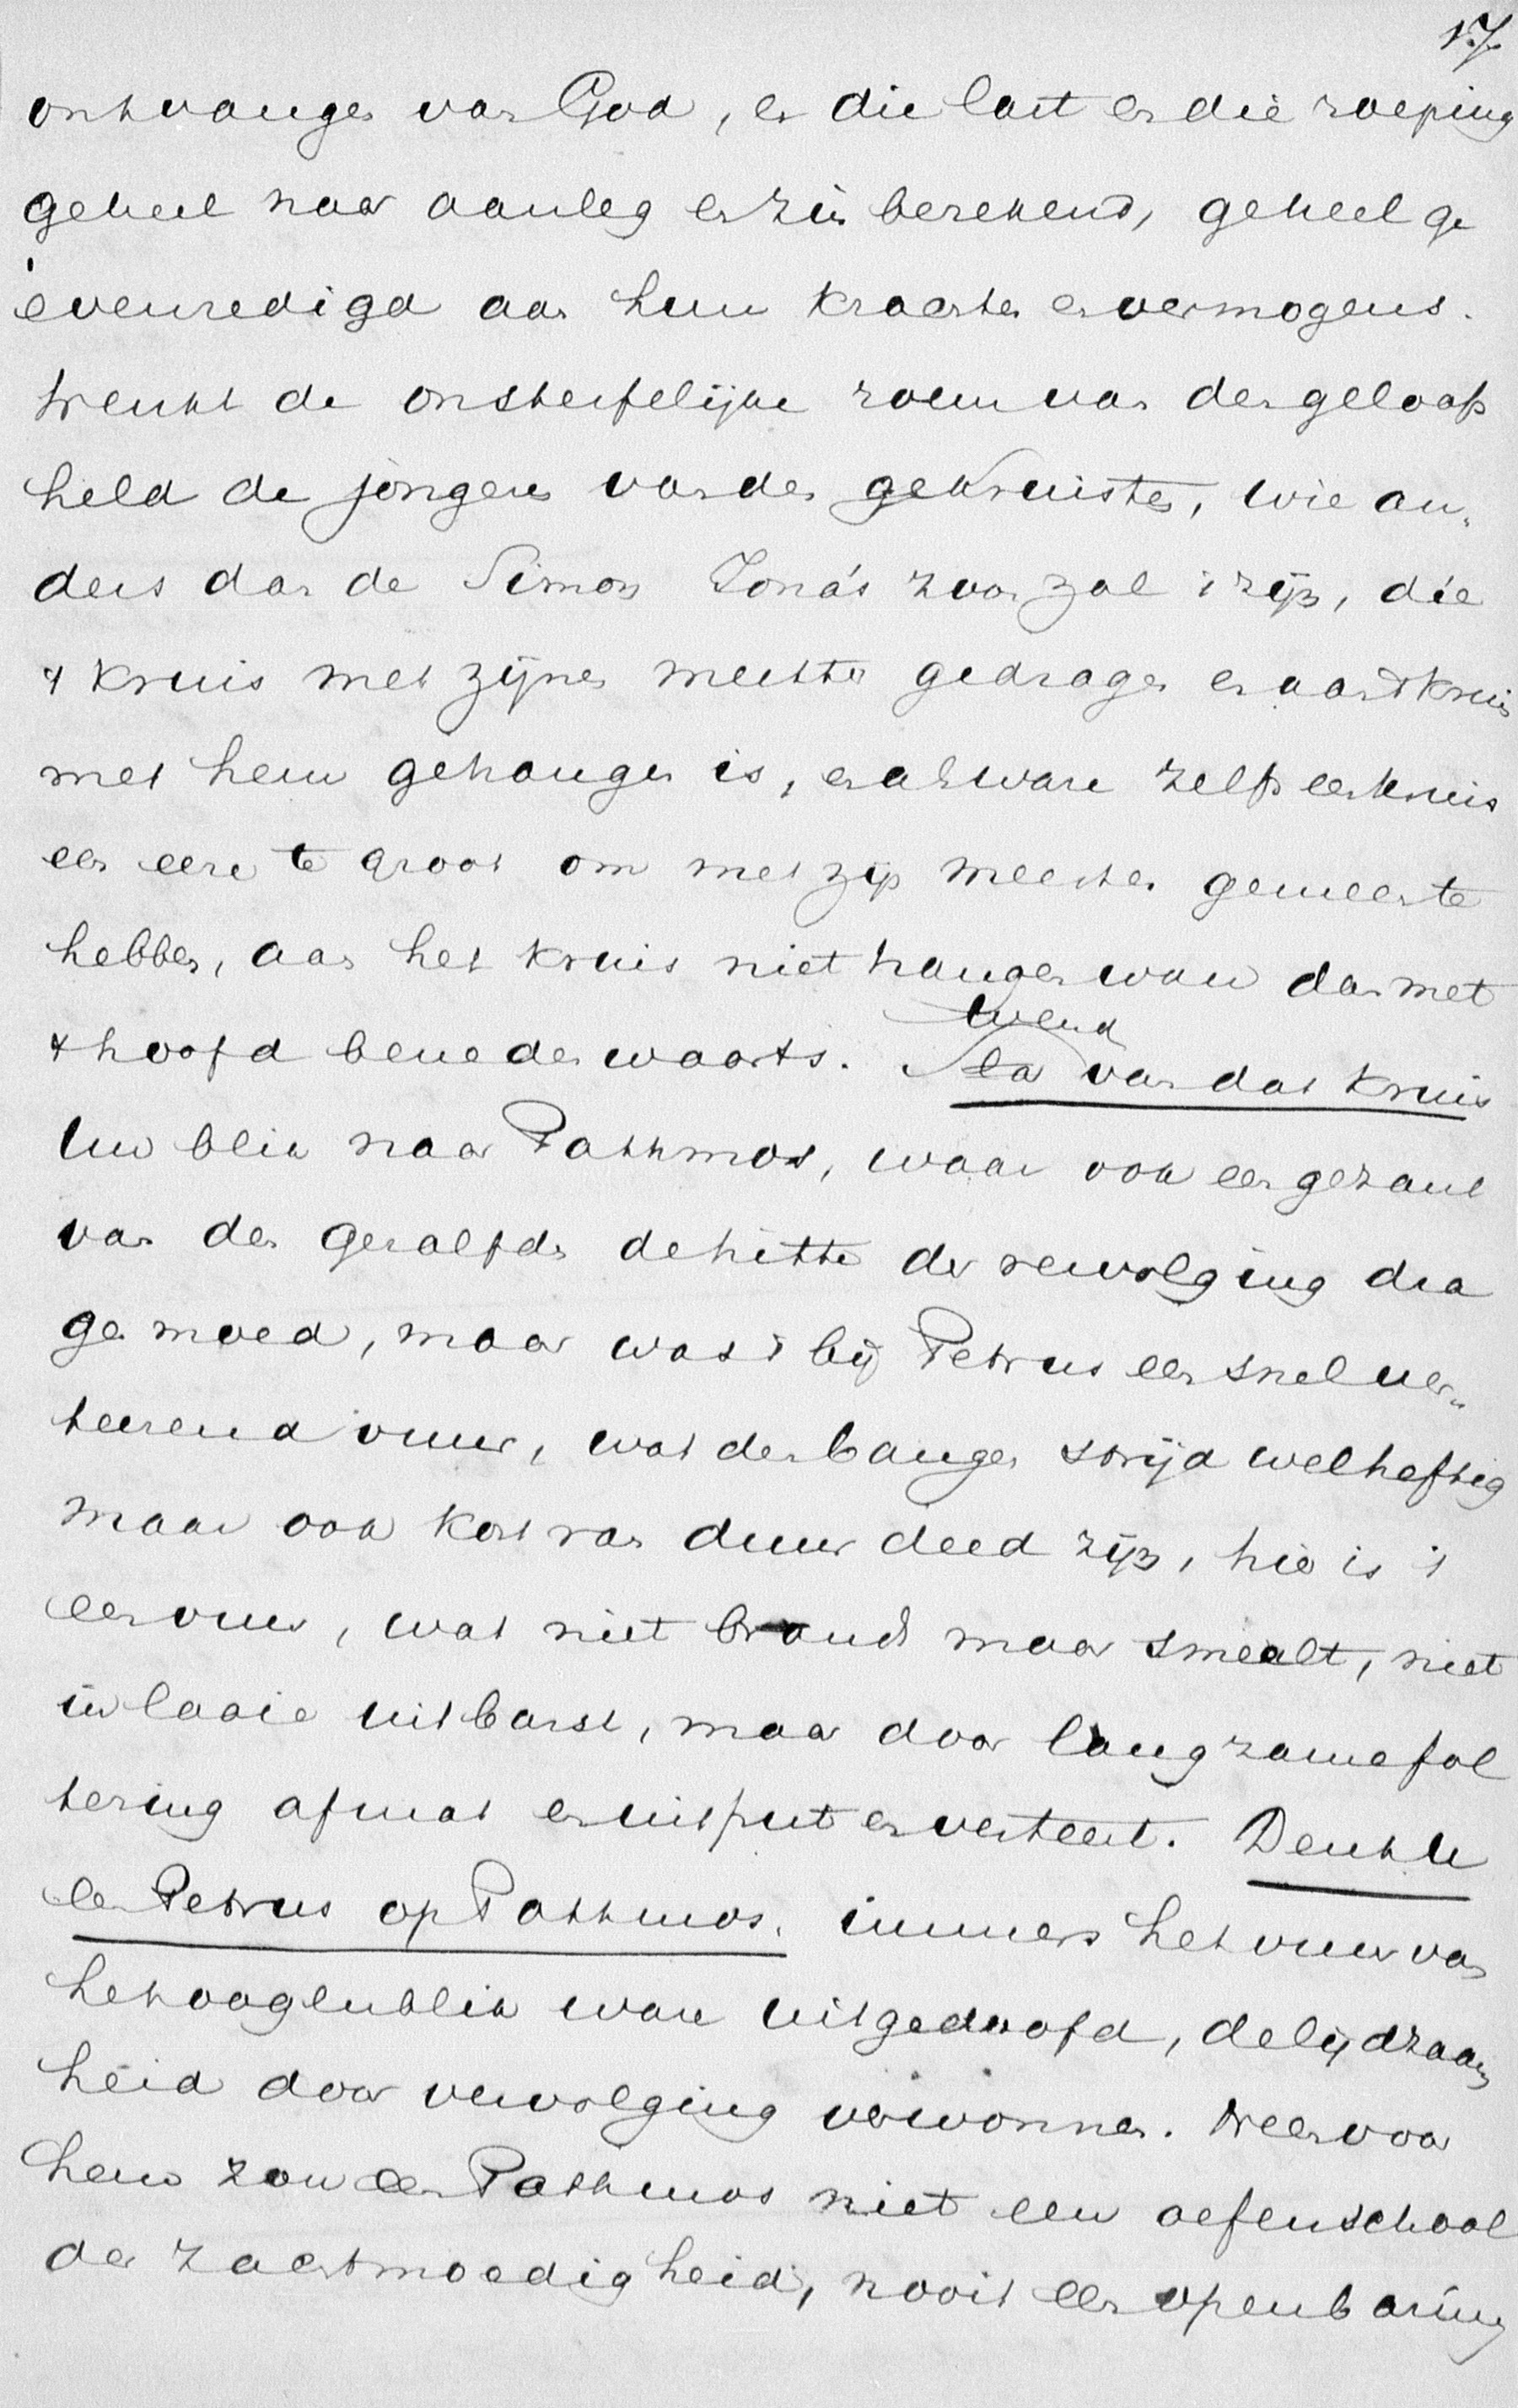 17
ontvangen van God, en die last en die roeping
geheel naar aanleg en zin berekend, geheel ge
evenredigd aan hun krachten en vermogens.
Wenkt de onsterfelijke roem van den geloofs
held de jongeren van den gekruisten, wie an„
ders dan de Simon Jona's zoon zal 't zijn, die
't kruis met zijnen meester gedragen en aan 't kruis
met hem gehangen is, en als ware zelfs een kruis
een eere te groot om met zijn meester gemeen te
hebben, aan het kruis niet hangen wou dan met
't hoofd benedenwaarts. Wend van dat kruis
Uw blik naar Pathmos, waar ook een gezant
van den gezalfden de hitte der vervolging dra
gen moed, maar was 't bij Petrus een snel ver„
teerend vuur, wat den bangen strijd wel heftig
maar ook kort van duur deed zijn, hier is 't
een vuur, wat niet brandt maar smealt, niet
in laaie uitbarst, maar door langzame fol
tering afmat en uitput en verteert. Denkt U
een Petrus op Pathmos. immers het vuur van
het oogenblik ware uitgedoofd, de lijdzaam
heid door vervolging verwonnen. Neen voor
hem zou een Pathmos niet een oefenschool
der zachtmoedigheid, nooit een openbaring